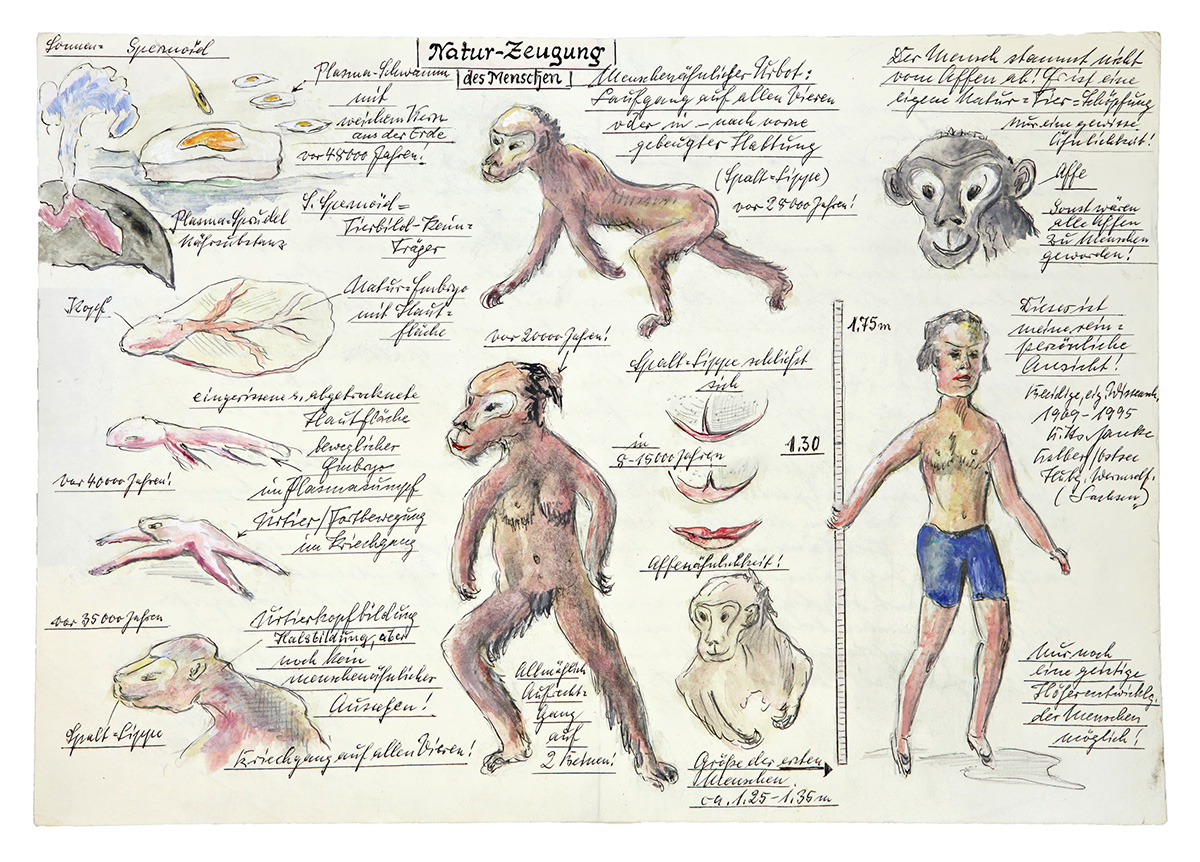 Natur-Zeugung
des Menschen
Sonnen- Spermoid
Plasma-Schwamm
mit
weichem Kern
aus der Erde
vor 48000 Jahren!
Plasma-Sprudel
Nährsubstanz
S. Spermoid=
Tierbild-Keim-
Träger
Kopf
Natur-Embryo
mit Haut-
fläche
eingerissene u. abgetrocknete
Hautfläche
beweglicher
Embryo
im Plasmasumpf
vor 40000 Jahren!
Urtier/Fortbewegung
im Kriechgang
vor 35000 Jahren
Urtierkopfbildung
Halsbildung, aber
noch kein
menschenähnlicher
Aussehen!
Spalt=Lippe
Kriechgang auf allen Vieren!
Menschenähnlicher Urbot:
Laufgang auf allen Vieren
oder in - nach vorne
gebeugter Haltung
(Spalt=Lippe)
vor 28000 Jahren!
vor 20000 Jahren!
Allmählich
Aufrecht-
Gang
auf
2 Beinen!
Spalt=Lippe schließt
sich
in
8-15000 Jahren
Affenähnlichkeit!
Größe der ersten
Menschen
ca. 1.25-1.35 m
1.75 m
1.30
Der Mensch stammt nicht
vom Affen ab! Er ist eine
eigene Natur=Tier=Schöpfung
Nur eine gewisse
Ähnlichkeit!
Affe
Sonst wären
alle Affen
zu Menschen
geworden!
Dieses ist
meine rein=
persönliche
Ansicht!
1969-1995
(Sachsen)
Nur noch
eine geistige
Höherentwicklg.
der Menschen
möglich!